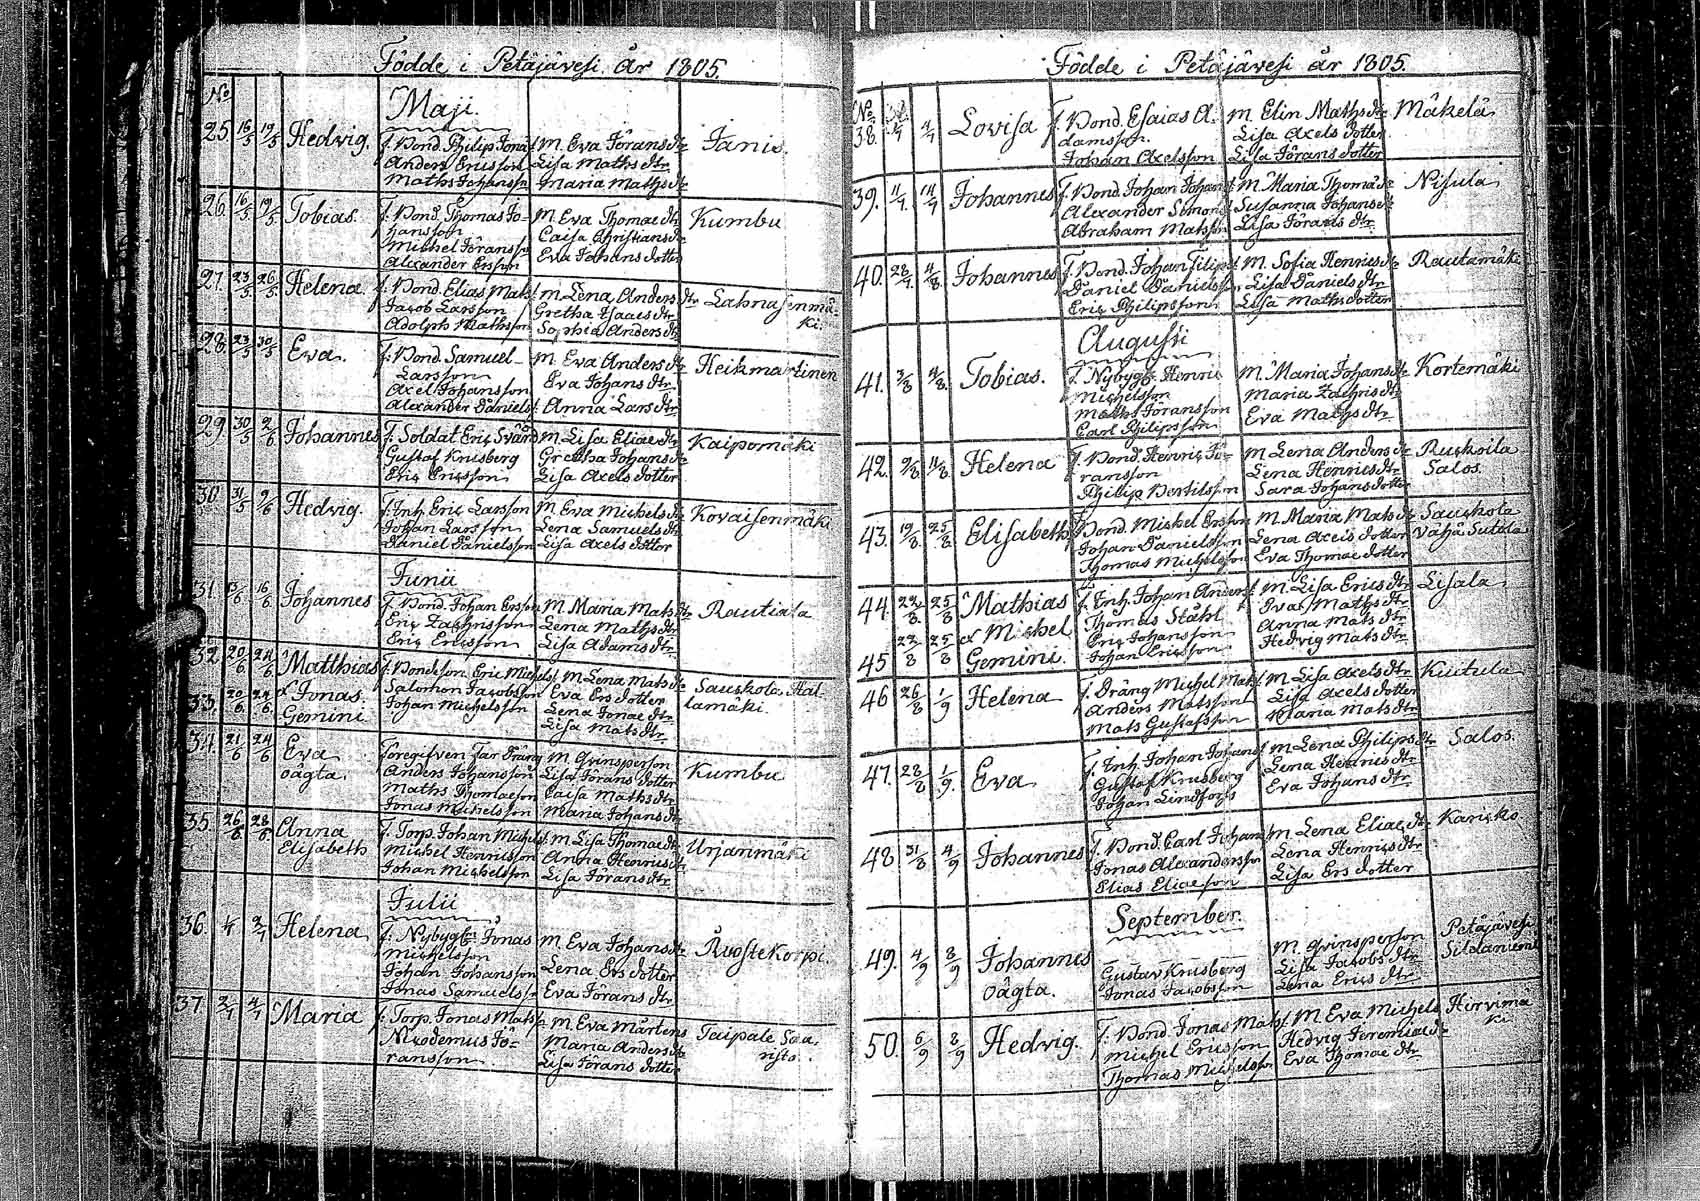 Födde i Petäjävesi År 1805.
No
Maji.
25. 16/5 19/5 Hedvig. f. Bond. Philip Jona M. Eva Jörans dtr Janis.
Anders Ericsson Lisa Maths dtr
Maths Johansson Maria Maths dtr
26. 16/5 19/5 Tobias. f. Bond. Thomas Jo- M. Eva Thomae dtr Kumbu
hansson Caisa Christians dtr
Michel Göransson Eva Johans dotter
Alexander Ersson
27. 23/5 26/5 Helena. f. Bond. Elias Mats M. Lena Anders dtr Lahnasenmä-
Jacob Larsson Gretha Isaacs dtr ki.
Adolph Mathsson Sophia Anders dtr
28. 23/5 30/5 Eva. f. Bond. Samuel M. Eva Anders dtr Heikmartinen
Larsson Eva Johans dtr.
Axel Johansson Anna Lars dtr
Alexander Daniels
29. 30/5 2/6 Johannes f. Soldat Eric Svärd M. Lisa Eliae dtr Kaipomäki
Gustaf Knusberg Gretha Johans dtr
Eric Ericsson Lisa Axels dotter
30. 31/5 9/6 Hedvig. f. Inh. Eric Larsson M. Eva Michels dtr Kovaisenmäki
Johan Larsson Lena Samuels dtr
Daniel Danielsson Lisa Axels dotter
Junii
31. 13/6 16/6 Johannes f. Bond. Johan Ersson M. Maria Mats dtr Rautiala
Eric Zachrisson Lena Maths dtr
Eric Ericsson Lisa Adams dtr
32. 20/6 24/6 Matthias f. Bondeson Eric Michels M. Lena Mats dtr Sauskola, Hal-
33. 20/6 24/6 & Jonas Salomon Jacobsson Eva Ers dotter lamäki.
Gemini Johan Michelsson Lena Jonae dtr
Lisa Mats dtr
34. 21/6 24/6 Eva Föregifven far Dräng M. Qvinsperson Kumbu
oägta. Anders Johansson Lisa Jörans dotter
Maths Thomaeson Caisa Maths dtr
Jonas Michelsson Maria Johans dtr
35. 26/6 28/6 Anna f. Torp. Johan Michels M. Lisa Thomae dtr Urjanmäki
Elisabeth Michel Henricsson Anna Henrics dtr
Johan Michelsson Lisa Jörans dtr
Julii
36. 1/7 2/7 Helena f. Nybygg. Jonas M. Eva Johans dtr Ruostekorpi.
Michelsson Lena Ers dotter
Johan Johansson Eva Jörans dtr
Jonas Samuelss
37. 2/7 4/7 Maria f. Torp. Jonas Mats M. Eva Mårtens Taipale Saa-
Nicodemus Jö- Maria Anders dtr risto.
ransson Lisa Jörans dotter
Födde i Petäjävesi år 1805.
No
38. 4/7 Lovisa f. Bond. Esaias A- M. Elin Maths dtr Mäkelä
damsson. Lisa Axels dotter
Johan Axelsson Lisa Jörans dotter
39. 11/7. 14/7 Johannes f. Bond. Johan Johans M. Maria Thomae dtr Nisula
Alexander Simons Susanna Johans dtr
Abraham Matsson Lisa Jörans dtr.
40. 28/7. 4/8 Johannes f. Bond. Johan Filips M. Sofia Henrics dtr Rautamäki
Daniel Danielsson Lisa Daniels dtr
Eric Philipsson Lisa Maths dotter
Augusti
41. 3/8 4/8 Tobias. f. Nybygg. Henric M. Maria Johans dtr Kortemäki
Michelsson Maria Zachris dtr
Maths Jöransson Eva Maths dtr
Carl Philipsson
42. 9/8 11/8 Helena f. Bond. Henric Jö- M. Lena Anders dtr Ruskoila
ransson Lena Henrics dtr Salos.
Philip Bertilsson Sara Johans dotter
43. 19/8. 25/8 Elisabeth Bond. Michel Ersson M. Maria Mats dtr Sauskola
Johan Danielsson Lena Axels dotter Vähä Sutela
Thomas Michelsson Eva Thomae dotter
44. 23/8 25/8 Mathias f. Inh. Johan Anders M. Lisa Erics dtr Lisala
Thomas Ståhl Eva Maths dtr
45 23/8 25/8 & Michel Eric Johansson Anna Mats dtr
Gemini. Johan Ericsson Hedvig Mats dtr
46 26/8 1/9 Helena f. Dräng Michel Mats M. Lisa Axels dtr Kuitula
Anders Matsson Lisa Axels dotter
Mats Gustafsson Maria Mats dtr
47. 28/8 1/9. Eva f. Inh. Johan Johans M. Lena Philips dtr Salos.
Gustaf Knusberg Lena Henrics dtr
Johan Lindfors Eva Johans dtr
48 31/8 4/9 Johannes f. Bond. Carl Johans M. Lena Eliae dtr Karisko
Jonas Alexandersson Lena Henrics dtr
Elias Eliaeson Lisa Ers dotter
September
49. 4/9 8/9 Johannes M. Qvinsperson Petäjävesi
oägta. Gustav Knusberg Lisa Jacobs dtr
Jonas Jacobsson Lena Erics dtr
50. 6/9 8/9 Hedvig. f. Bond. Jonas Mats M. Eva Michels Hirvimä
Michel Ericsson Hedvig Jeremiae dtr ki
Thomas Michelsson Eva Thomae dtr